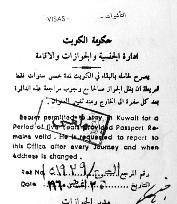 VISAS- التأشيرات-
حكومة الكويت
ادارة الجنسية والجوازات والاقامة
يصرح حامله بالبقاء في الكويت لمدة خمس سنوات فقط
شريطة أن يظل الجواز صالحا مع وجوب مراجعة هذه الدائرة
بعد كل سفرة الى الخارج وعند تغيير العنوان.
Bearer permitted to stay in Kuwait for a
Period of five years provided Passport Re-
mains valid. He is requested to report to
this Office after every Journey and when
Address is changed.
Ref No رقم المرجع
Date التاريخ
مدير الجوازات